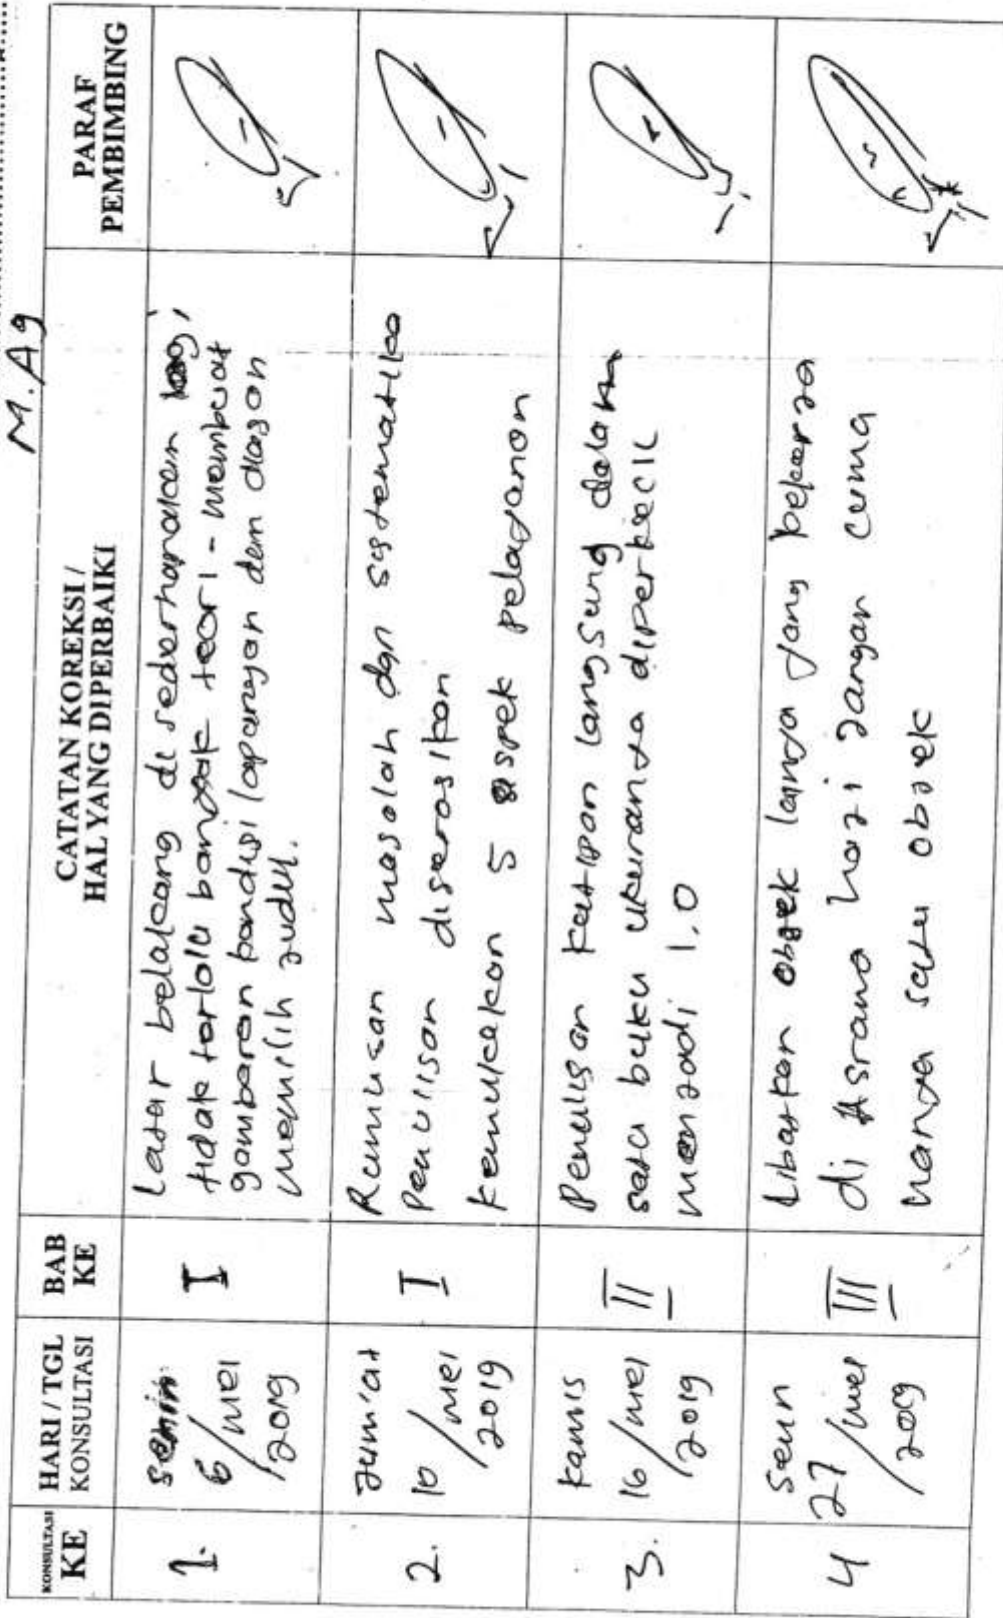 M. Ag
KONSULTASI
KE
HARI / TGL
KONSULTASI
BAB
KE
CATATAN KOREKSI /
HAL YANG DIPERBAIKI
PARAF
PEMBIMBING
1.
Senin
6/mei
2019
I
Latar belakang di sederhanakan lagi,
tidak terlalu banyak teori - membuat
gambaran kondisi lapangan dan alasan
memilih judul.
2.
Jum'at
10/mei
2019
I
Rumusan masalah dgn sistematika
penulisan diserasikan
kemukakan 5 aspek pelayanan
3.
kamis
16/mei
2019
II
Penulisan kutipan langsung dalam
satu buku ukurannya diperkecil
menjadi 1.0
4
Senin
27/mei
2019
III
Libatkan objek lainya yang bekerja
di Asrama haji jangan cuma
hanya satu objek